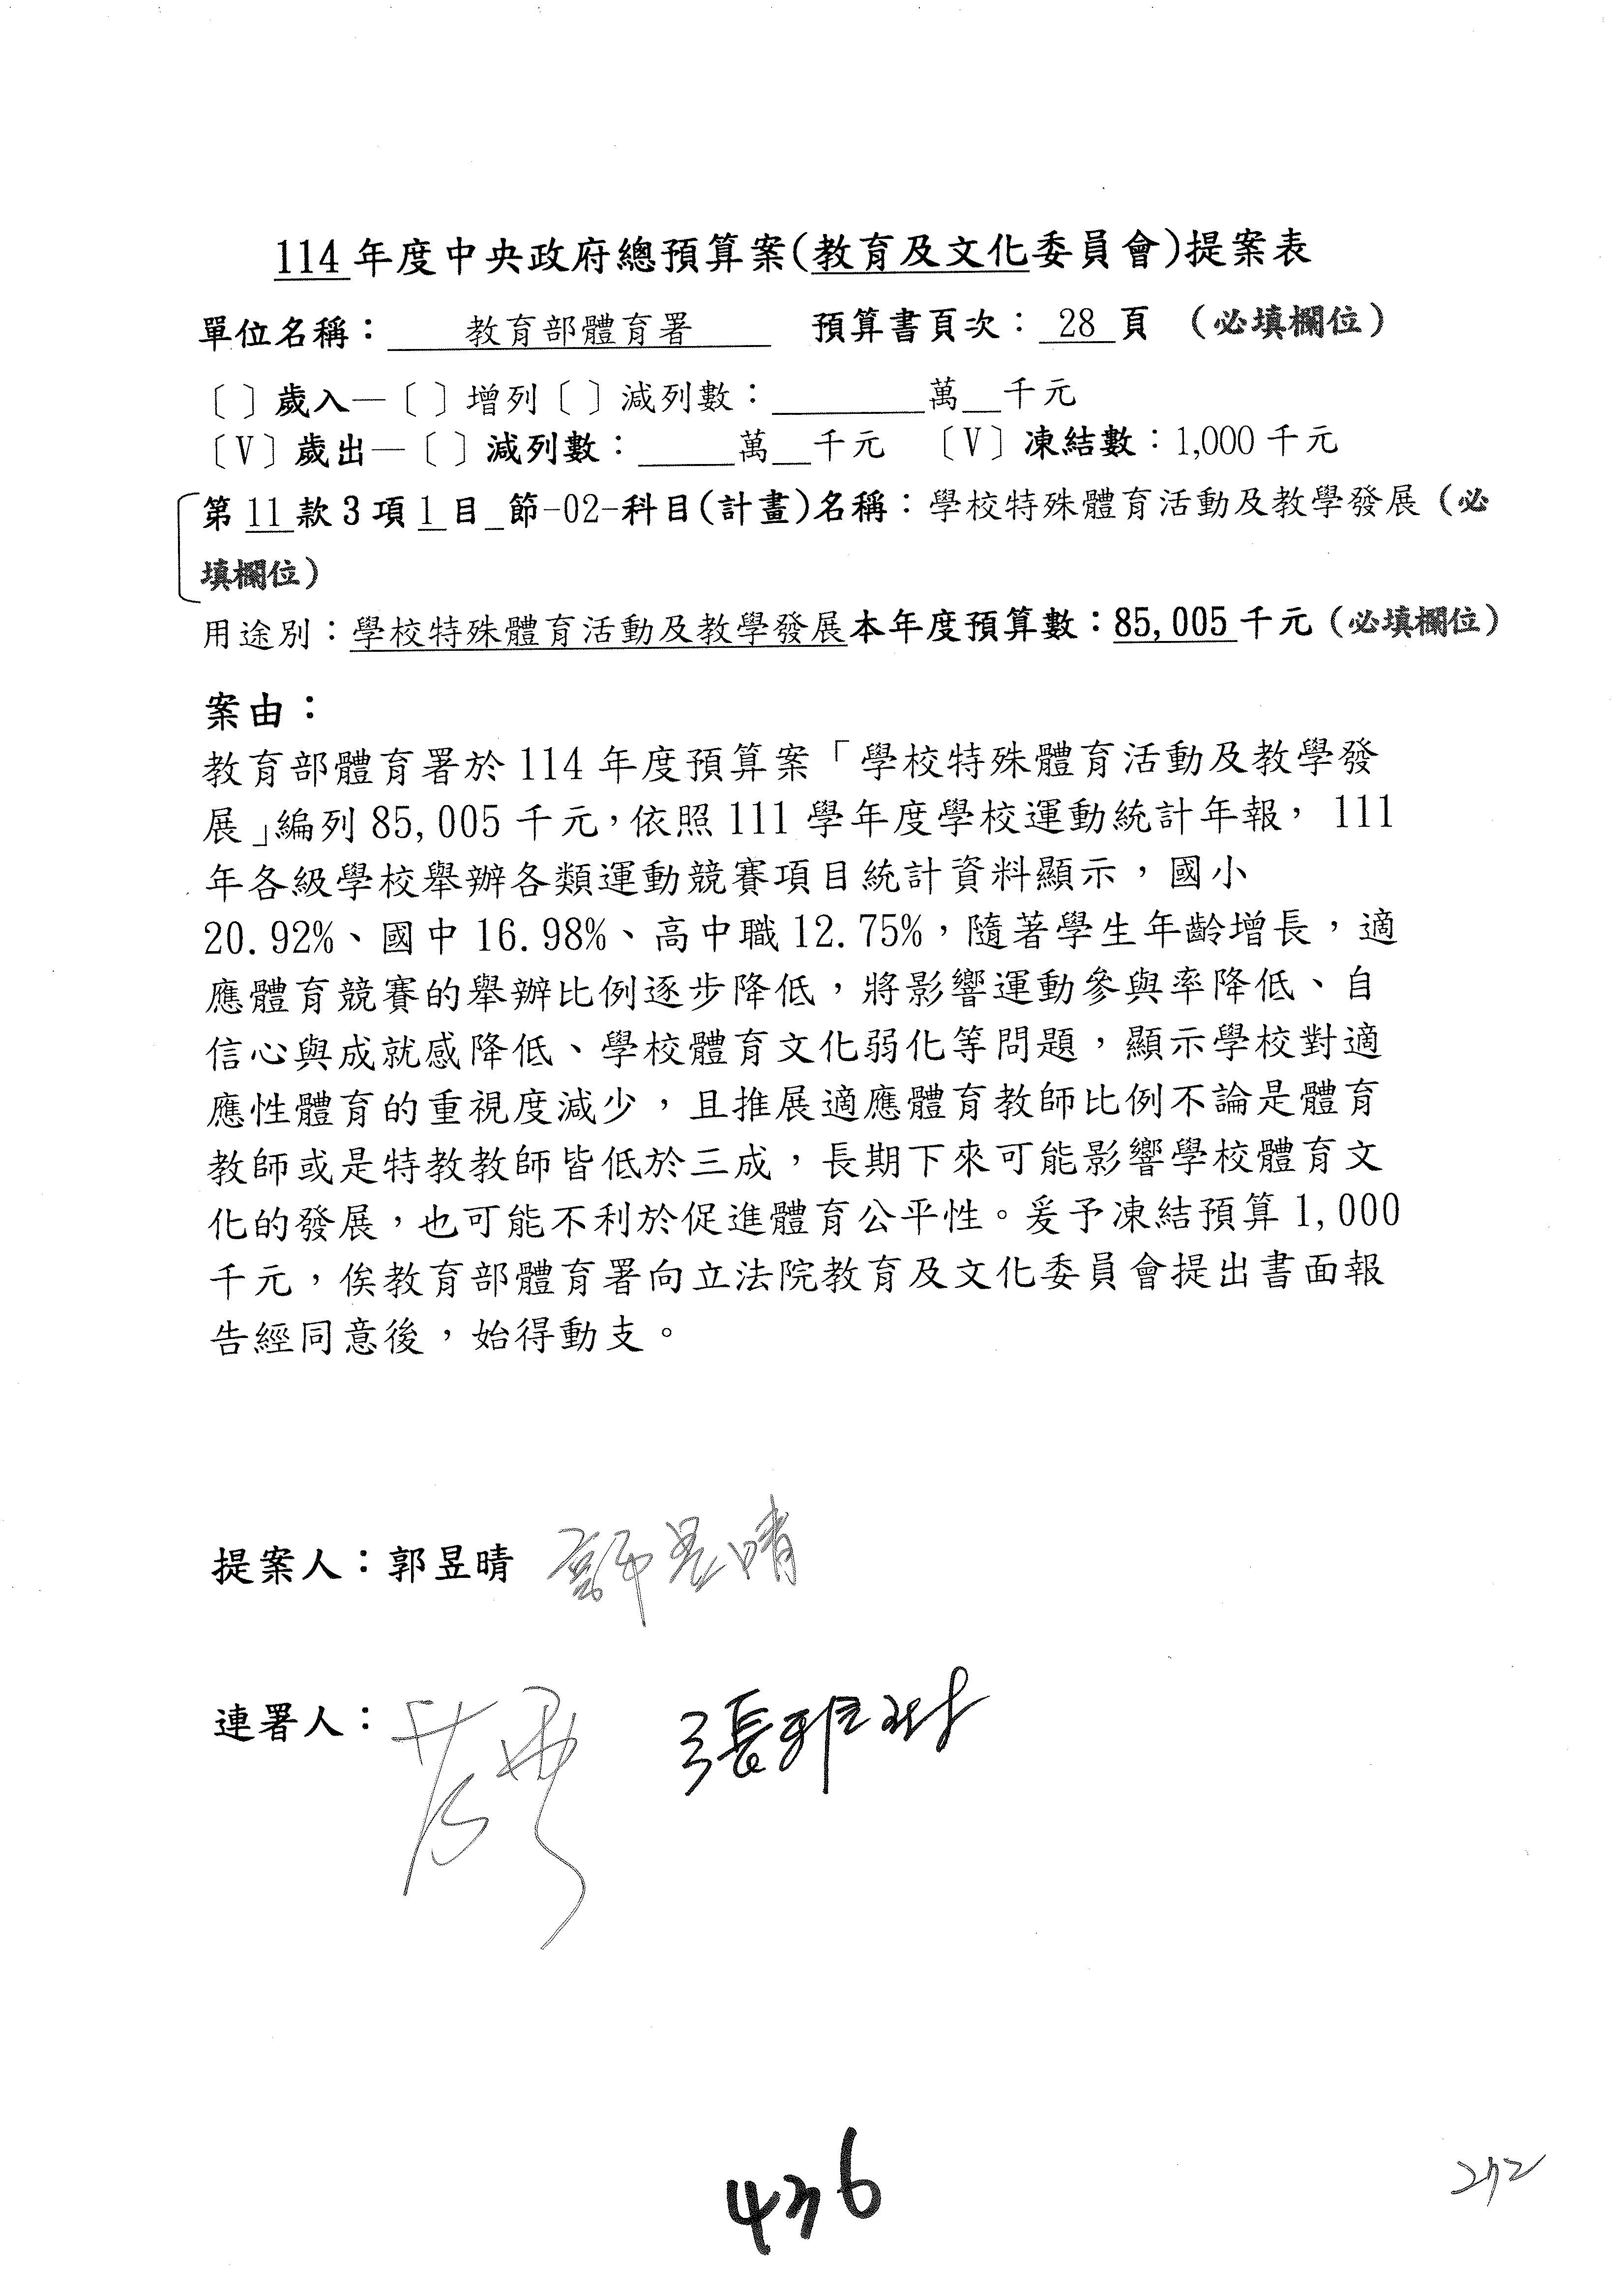 114年度中央政府總預算案(教育及文化委員會)提案表
單位名稱：教育部體育署 預算書頁次：28頁（必填欄位）
〔〕歲入—〔〕增列〔〕減列數：______萬__千元
〔V〕歲出—〔〕減列數：____萬__千元 〔V〕凍結數：1,000千元
第11款3項1目_節-02-科目(計畫)名稱：學校特殊體育活動及教學發展（必
填欄位）
用途別：學校特殊體育活動及教學發展本年度預算數：85,005千元（必填欄位）
案由：
教育部體育署於114年度預算案「學校特殊體育活動及教學發
展」編列85,005千元，依照111學年度學校運動統計年報，111
年各級學校舉辦各類運動競賽項目統計資料顯示，國小
20.92%、國中16.98%、高中職12.75%，隨著學生年齡增長，適
應體育競賽的舉辦比例逐步降低，將影響運動參與率降低、自
信心與成就感降低、學校體育文化弱化等問題，顯示學校對適
應性體育的重視度減少，且推展適應體育教師比例不論是體育
教師或是特教教師皆低於三成，長期下來可能影響學校體育文
化的發展，也可能不利於促進體育公平性。爰予凍結預算1,000
千元，俟教育部體育署向立法院教育及文化委員會提出書面報
告經同意後，始得動支。
提案人：郭昱晴 郭昱晴
連署人： 張雅琳
436
272